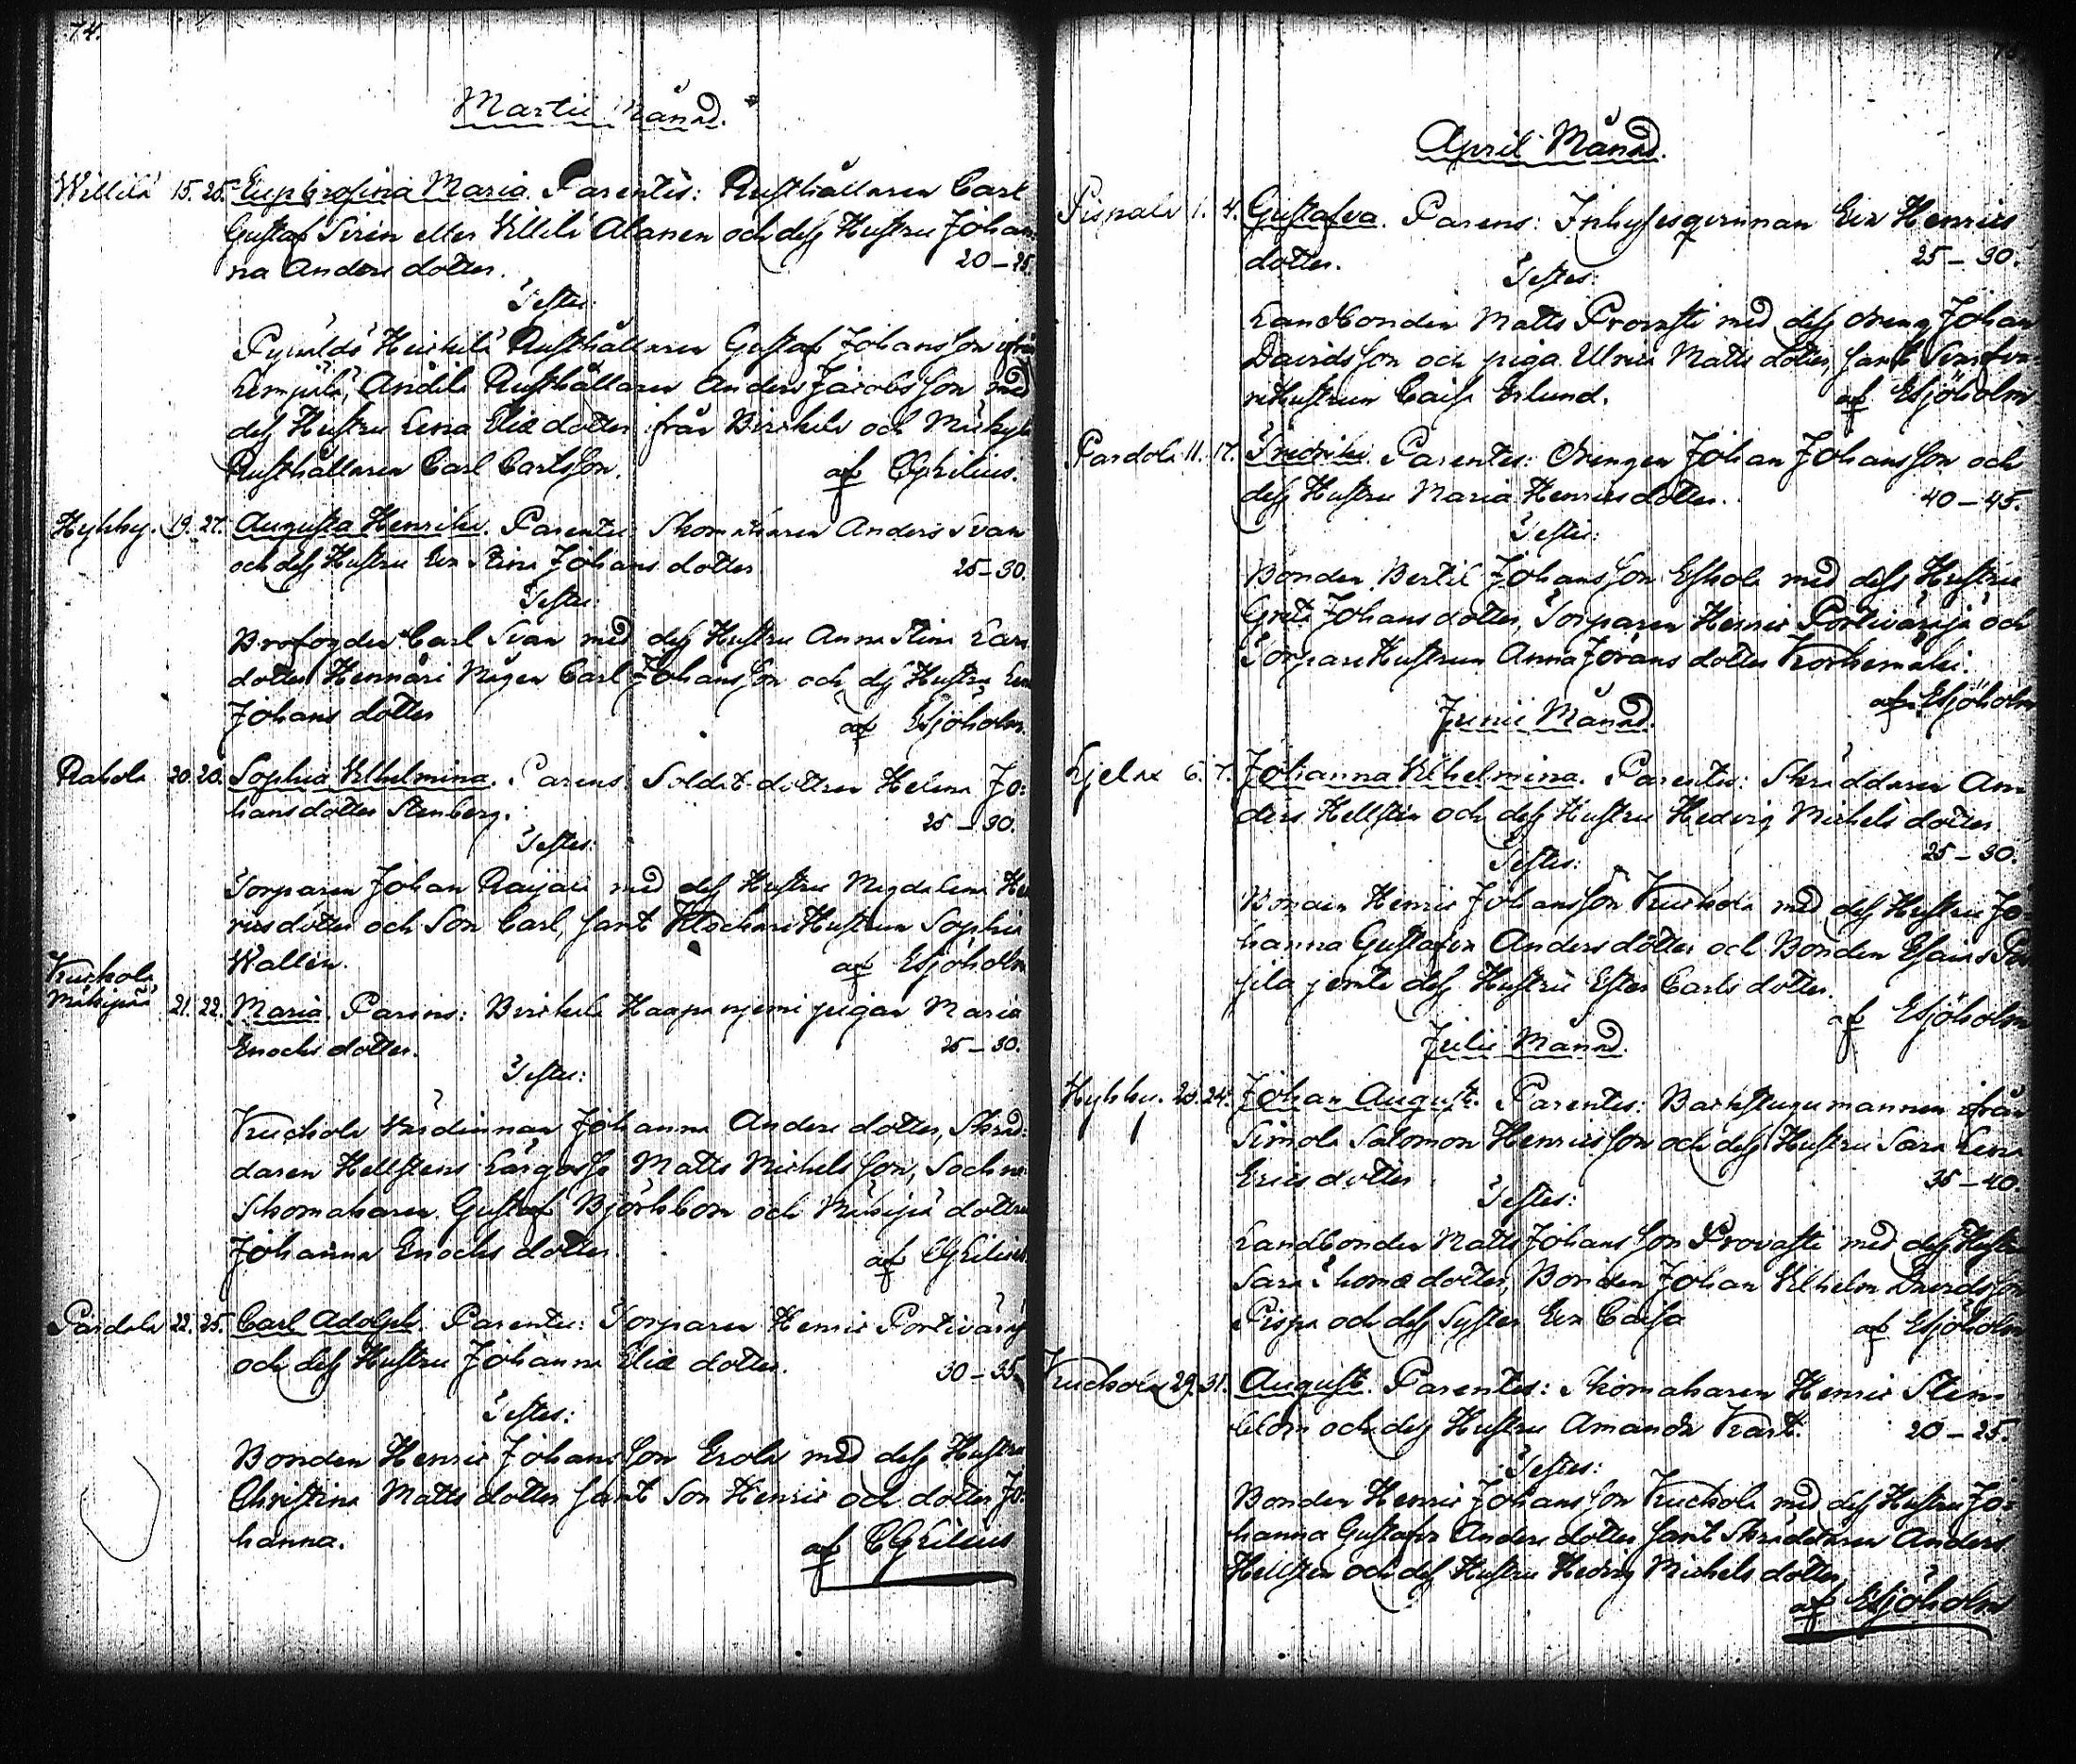 74.
Martii Månad.
Willilä 15. 25. Euphrosina Maria. Parentes: Rusthållaren Carl
Gustaf Sirén eller Villilä Alanen och dess Hustru Johan
na Anders dotter. 20 – 25.
Testes:
Heikkilä Rusthållaren Gustaf Johansson ifrån
Anttila Rusthållaren Anders Jacobsson med
dess Hustru Lena Eliæ dotter från Birkkala och
Rusthållaren Carl Carlsson. af CGZilius.
Hyhky. 19. 27. Augusta Henrika. Parentes Skomakaren Anders Svan
och dess Hustru Eva Stina Johans dotter 25–30.
Testes:
Brofogden Carl Svan med dess Hustru Anna Stina Lars
dotter Hennäri Mågen Carl Johansson och dess Hustru Lena
Johans dotter af ESjöholm.
Rahola 20. 20. Sophia Vilhelmina. Parens Soldat dottren Helena Jo:
hansdotter Stenberg. 25 – 30.
Testes:
Torparen Johan Raijari med dess Hustru Magdalena Hen
ricsdotter och Son Carl, samt Klockare Hustrun Sophia
Wallén. af ESjöholm
Kuckola
Mäkipää 21. 22. Maria. Parens: Birkkala Haapaniemi pigan Maria
Enochs dotter. 25 – 30.
Testes:
Kuckola Värdinnan Johanna Anders dotter, Skräd:
daren Hellstens Lärgosse Matts Michelsson, Sockne
Skomakaren Gustaf Björkbom och Mäkipää dottren
Johanna Enochs dotter. af CGZilius
Pärdala 22. 25. Carl Adolph. Parentes: Torparen Henric Portiväräjä
och dess Hustru Johanna Eliæ dotter. 30 – 35.
Testes:
Bonden Henric Johansson Erola med dess Hustru
Christina Matts dotter samt Son Henric och dotter Jo:
hanna.
af CGZilius
April Månad.
Pispala 1. 4. Gustafva. Parens: Inhysesqvinnan Eva Henrics
dotter. 25 – 30.
Testes:
Landbonden Matts Provasti med dess dreng Johan
Davidsson och piga Ulrica Matts dotter, samt
Hustrun Caisa Erlund. af ESjöholm
Pärdola 11. 17. Fredrika. Parentes: Drengen Johan Johansson och
dess Hustru Maria Henricsdotter. 40 – 45.
Testes:
Bonden Bertil Johansson Eskola med dess Hustru
Greta Johans dotter, Torparen Henric Portiväräjä och
Torpare Hustrun Anna Jörans dotter Korkemäki.
af ESjöholm
Junii Månad.
6. 7. Johanna Vilhelmina. Parentes: Skräddaren An:
ders Hellstén och dess Hustru Hedvig Michels dotter
25 – 30.
Testes:
Bonden Henric Johansson Kuckola med dess Hustru Jo:
hanna Gustafva Anders dotter och Bonden Esaias
sila jemte dess Hustru Ester Carls dotter.
af ESjöholm
Julii Månad.
Hyhky. 23. 24. Johan August. Parentes: Backstugumannen ifrån
Simola Salomon Henricsson och dess Hustru Sara Lena
Erics dotter 35 – 40.
Testes:
Landbonden Matts Johansson Provasti med dess Hustru
Sara Thomæ dotter, Bonden Johan Vilhelm Davidsson
Pispa och dess Syster Eva Caisa af ESjöholm
Kuckola 29. 31. August. Parentes: Skomakaren Henric Sten:
blom och dess Hustru Amanda Kvast. 20 – 25.
Testes:
Bonden Henric Johansson Kuckola med dess Hustru Jo:
hanna Gustafva Anders dotter samt Skräddaren Anders
Hellsten och dess Hustru Hedvig Michels dotter
af ESjöholm